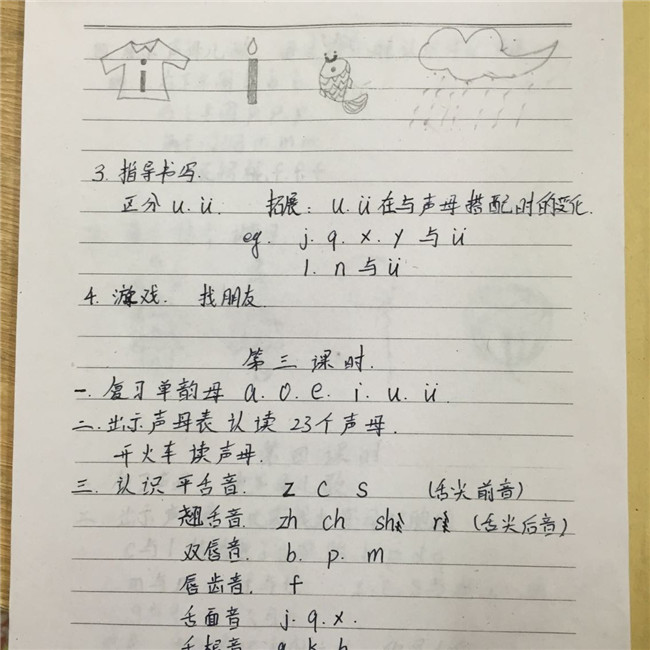 i
3. 指导书写.
区分 u. ü. 拓展: u. ü 在与声母搭配时的变化.
eg. j. q. x. y 与 ü
l. n 与 ü
4. 游戏. 找朋友.
第三课时.
一. 复习单韵母 a. o. e. i. u. ü.
二. 出示声母表 认读 23个声母.
开火车读声母.
三. 认识 平舌音. z c s (舌尖前音)
翘舌音. zh ch sh r (舌尖后音)
双唇音. b. p. m
唇齿音. f
舌面音 j. q. x.
舌根音 g. k. h